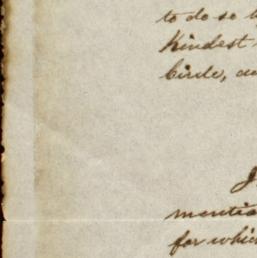 to do so
Kindest
Circle,
mentio
for which